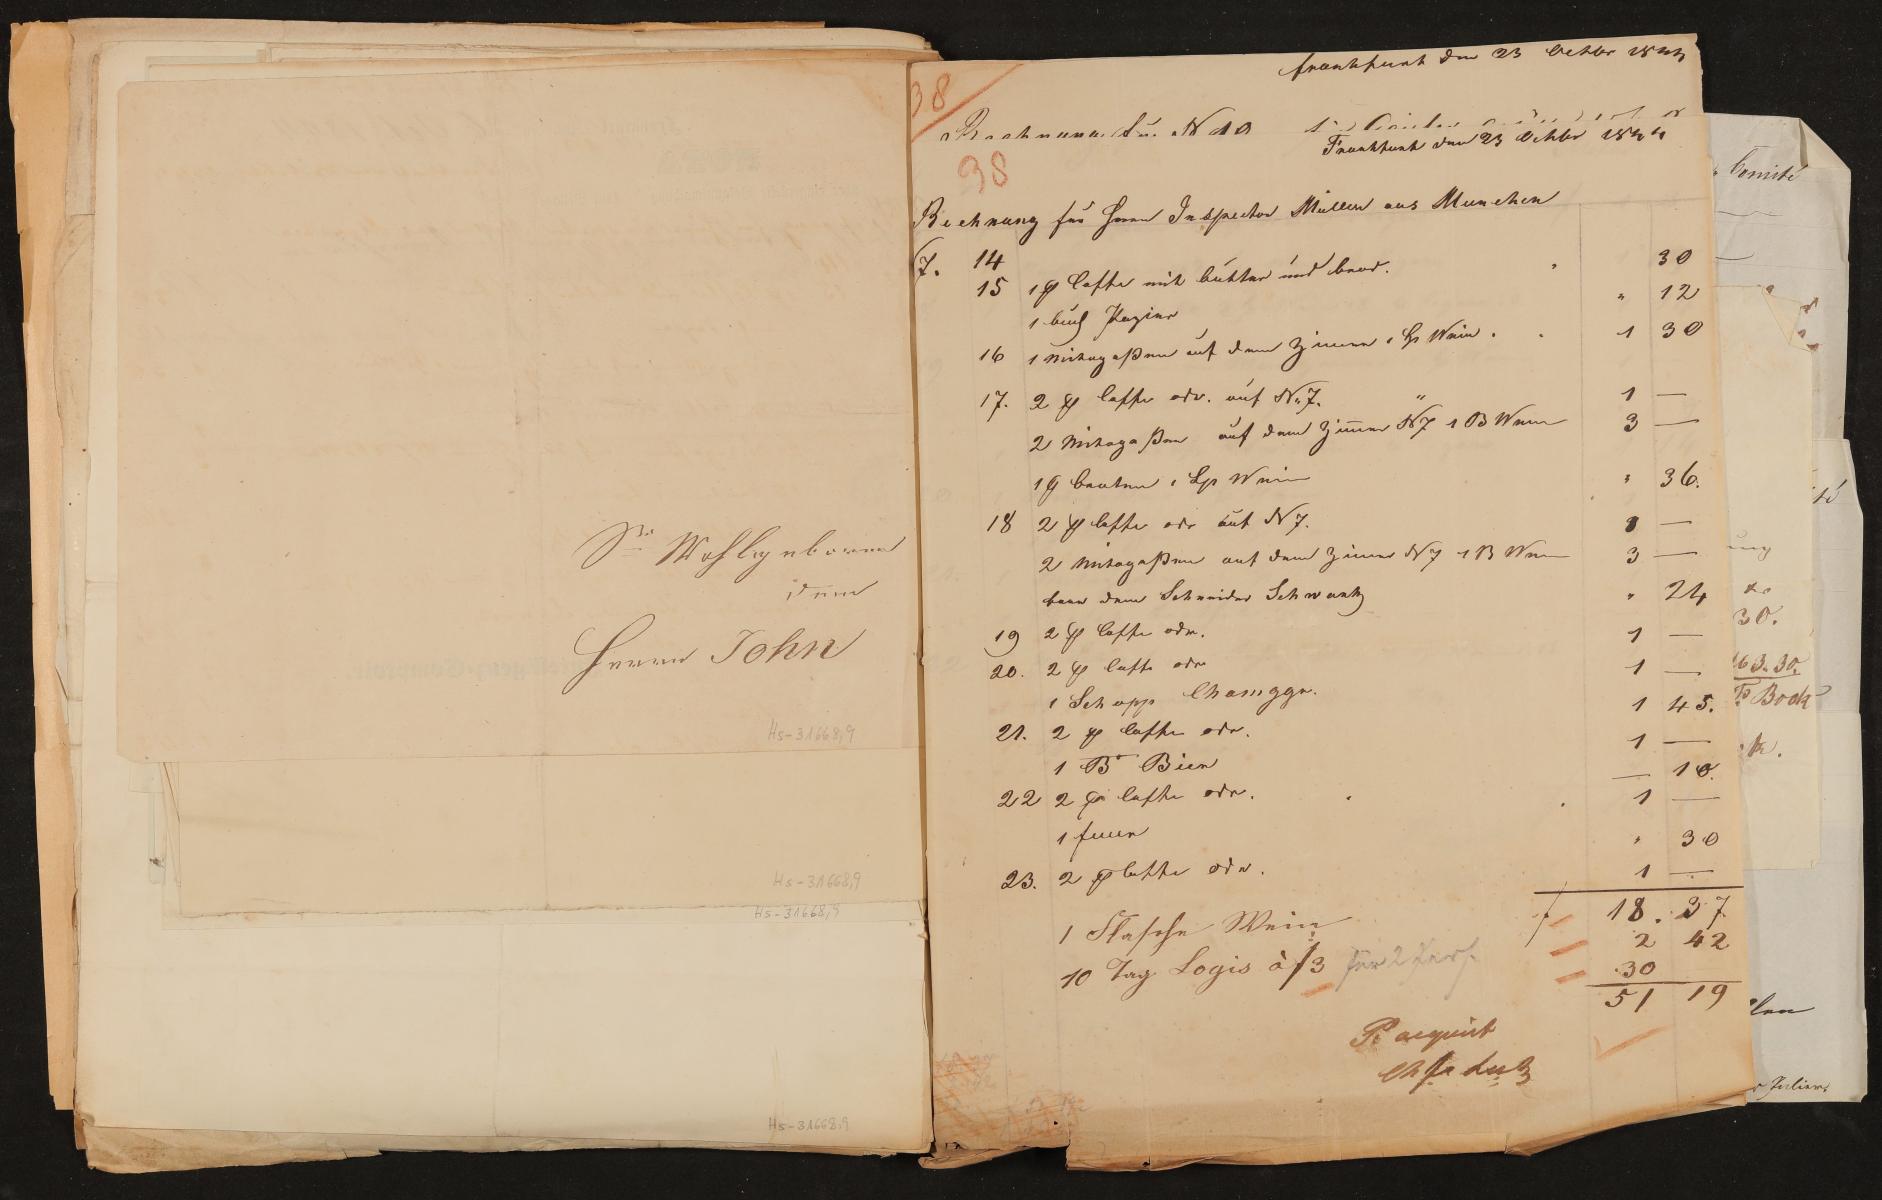 Sr Wohlgeboren
dem
Herrn John
Hs-31668,9
Hs-31668,9
Hs-31668,9
Hs-31668,9
38
Frankfurt den 23 Octbr 1844
Rechnung für No 10
Frankfurt den 23 Octbr 1844
38
Rechnung für Herrn Inspector Müller aus München
7. 14
15 1 P Caffe mit butter und brod. " 30
1 buch Papier " 12
16 1 Mitagaßen auf dem Zimmer 1 Sp Wein . 1 30
17. 2 P Caffe odr. auf No 7. 1 —
2 Mitagaßen auf dem Zimmer No 7 1 B Wein 3 —
1 P braten 1 Sp Wein " 36.
18 2 P Caffe odr auf No 7. 1 —
2 Mitagaßen auf dem Zimmer No 7 1 B Wein 3 —
dem Schneider Schwartz " 24
19 2 P Caffe odr. 1 —
20. 2 P Caffe odr 1 —
1 Schopp Champgr. 1 45.
21. 2 P Caffe odr. 1 —
1 B Bier — 10.
22 2 P Caffe odr. 1 —
1 feuer " 30
23. 2 P Caffe odr. 1 —
f 18. 37
1 Flasche Wein 2 42
10 Tag Logis à f3 für 2 Pers. 30
51 19
P. acquit
Comité
30.
163.30.
Book